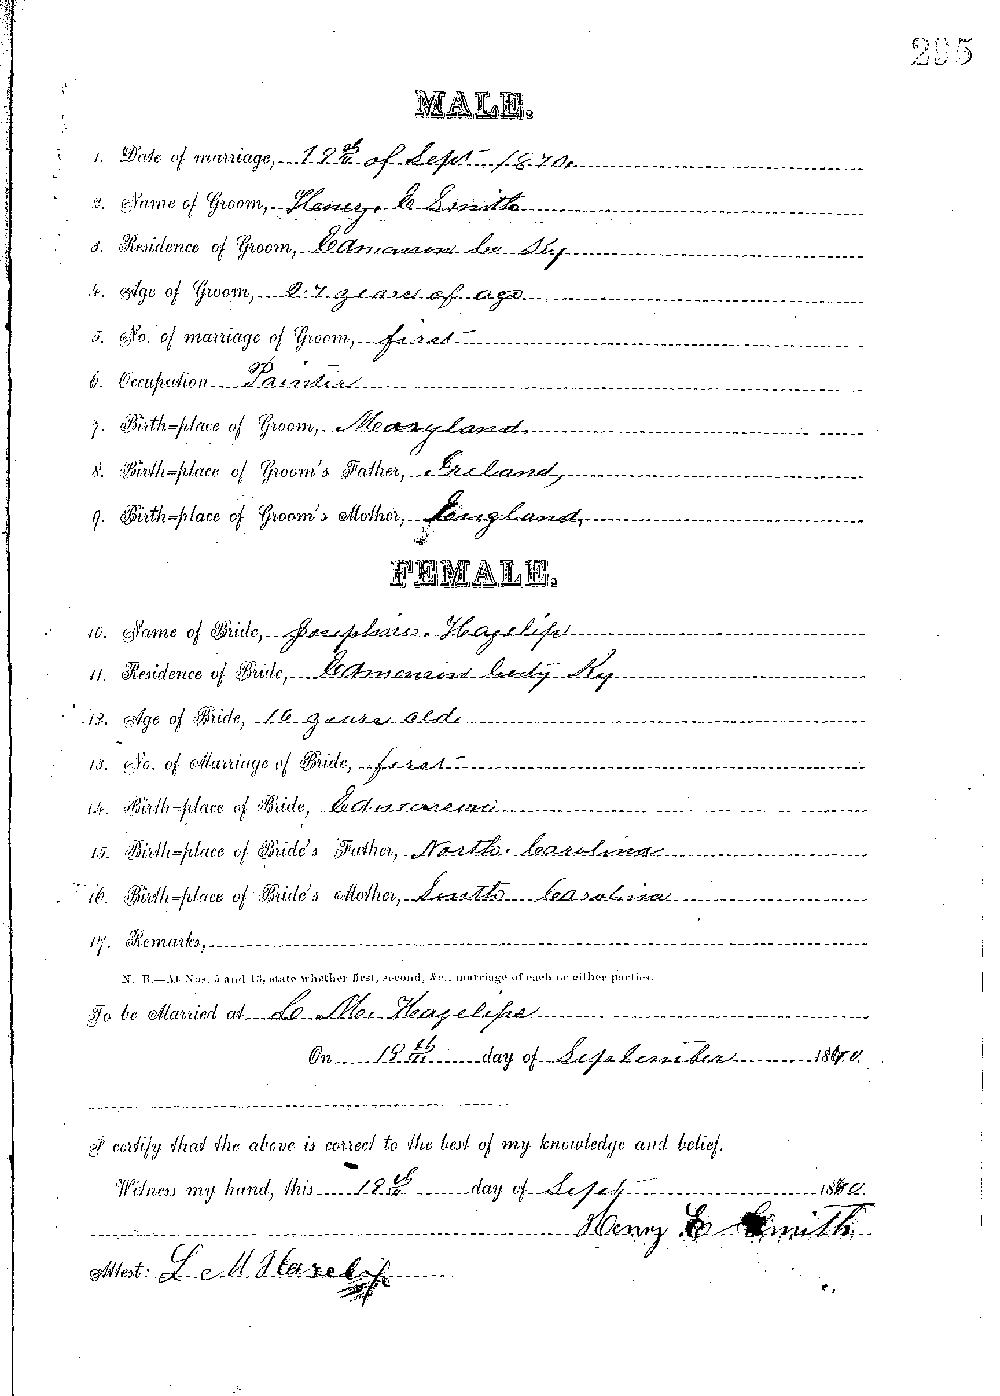 295
MALE.
1. Date of marriage, 19th of Sept 1870.
2. Name of Groom, Henry. C Smith
3. Residence of Groom, Edmonson Co Ky
4. Age of Groom, 27 years of age
5. No. of marriage of Groom, first
6. Occupation Painter
7. Birth=place of Groom, Maryland.
8. Birth=place of Groom's Father, Ireland,
9. Birth=place of Groom's Mother, England,
FEMALE.
10. Name of Bride, Josephine. Hazelipe
11. Residence of Bride, Edmonson Ky
12. Age of Bride, 16 years old.
13. No. of Marriage of Bride, first
14. Birth=place of Bride,
15. Birth=place of Bride's Father, North. Carolina
16. Birth=place of Bride's Mother, South Carolina
17. Remarks,
N. B.—At Nos. 5 and 13, state whether first, second, &c., marriage of each or either parties.
To be Married at L M. Hazelipe
On 19th day of September 1870.
I certify that the above is correct to the best of my knowledge and belief.
Witness my hand, this 19th day of Sept 1870.
Henry C Smith
Attest: L M Hazelip